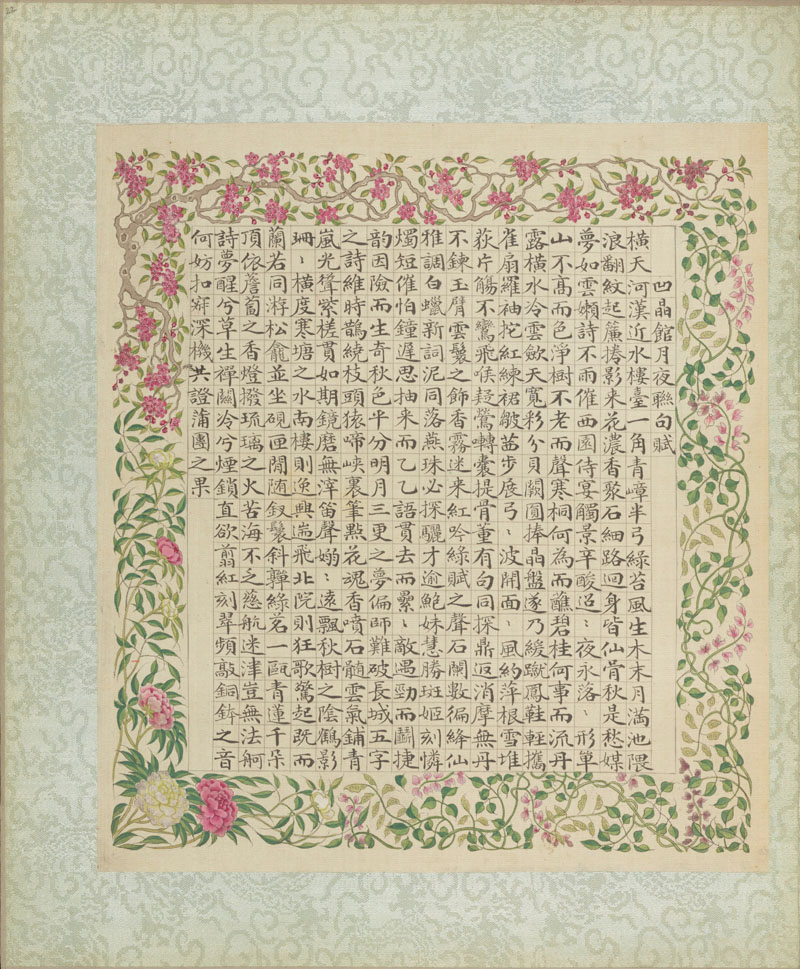 凹晶館月夜聯句賦
橫天河漢近水樓臺一角青嶂半弓綠苔風生木末月滿池隈
浪翻紋起簾捲影來花濃香聚石細路迴身皆仙骨秋是愁媒
夢如雲嬾詩不雨催西園侍宴觸景辛酸迢〻夜永落〻形單
山不高而色淨樹不老而聲寒桐何為而醮碧桂何事而流丹
露橫水冷雲歛天寬彩分貝闕圓捧晶盤遂乃緩蹴鳳鞋輕攜
雀扇羅袖拕紅練裙皺茜步展弓〻波開面〻風約萍根雪堆
荻片觴不驚飛喉起鶯囀囊提骨董有句同探鼎返消摩無丹
不鍊玉臂雲鬟之飾香霧迷來紅吟綠賦之聲石闌數徧絳仙
雅調白蠟新詞泥同落燕珠必探驪才逾鮑妹慧勝班姬刻憐
燭短催怕鐘遲思抽來而乙乙語貫去而纍〻敵遇勁而鬬捷
韵因險而生奇秋色平分明月三更之夢偏師難破長城五字
之詩維時鵲繞枝頭猿啼峽裏筆點花魂香噴石髓雲氣鋪青
嵐光聳紫槎貫如期鏡磨無滓笛聲嫋〻遠飄秋樹之陰鶴影
珊〻橫度寒塘之水南樓則逸興遄飛北院則狂歌驚起既而
蘭若同游松龕並坐硯匣閒随釵鬟斜嚲綠茗一甌青蓮千朵
頂依薝蔔之香燈撥琉璃之火苦海不乏慈航迷津豈無法舸
詩夢醒兮草生禪關冷兮煙鎖直欲翦紅刻翠頻敲銅鉢之音
何妨扣寂深機共證蒲團之果
22